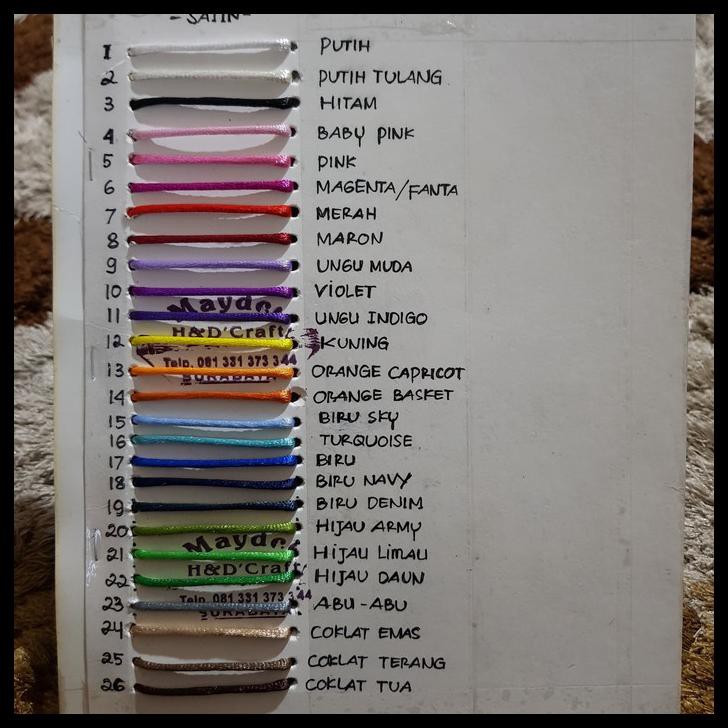 - SATIN -
1 PUTIH
2 PUTIH TULANG
3 HITAM
4 BABY PINK
5 PINK
6 MAGENTA/FANTA
7 MERAH
8 MARON
9 UNGU MUDA
10 VIOLET
Maydo
11 UNGU INDIGO
H&D'Craft
12 KUNING
Telp. 081 331 373 344
13 ORANGE CAPRICOT
SURABAYA
14 ORANGE BASKET
15 BIRU SKY
16 TURQUOISE
17 BIRU
18 BIRU NAVY
19 BIRU DENIM
20 HIJAU ARMY
Maydo
21 HIJAU LIMAU
H&D'Craft
22 HIJAU DAUN
Telp. 081 331 373 344
23 ABU-ABU
SURABAYA
24 COKLAT EMAS
25 COKLAT TERANG
26 COKLAT TUA